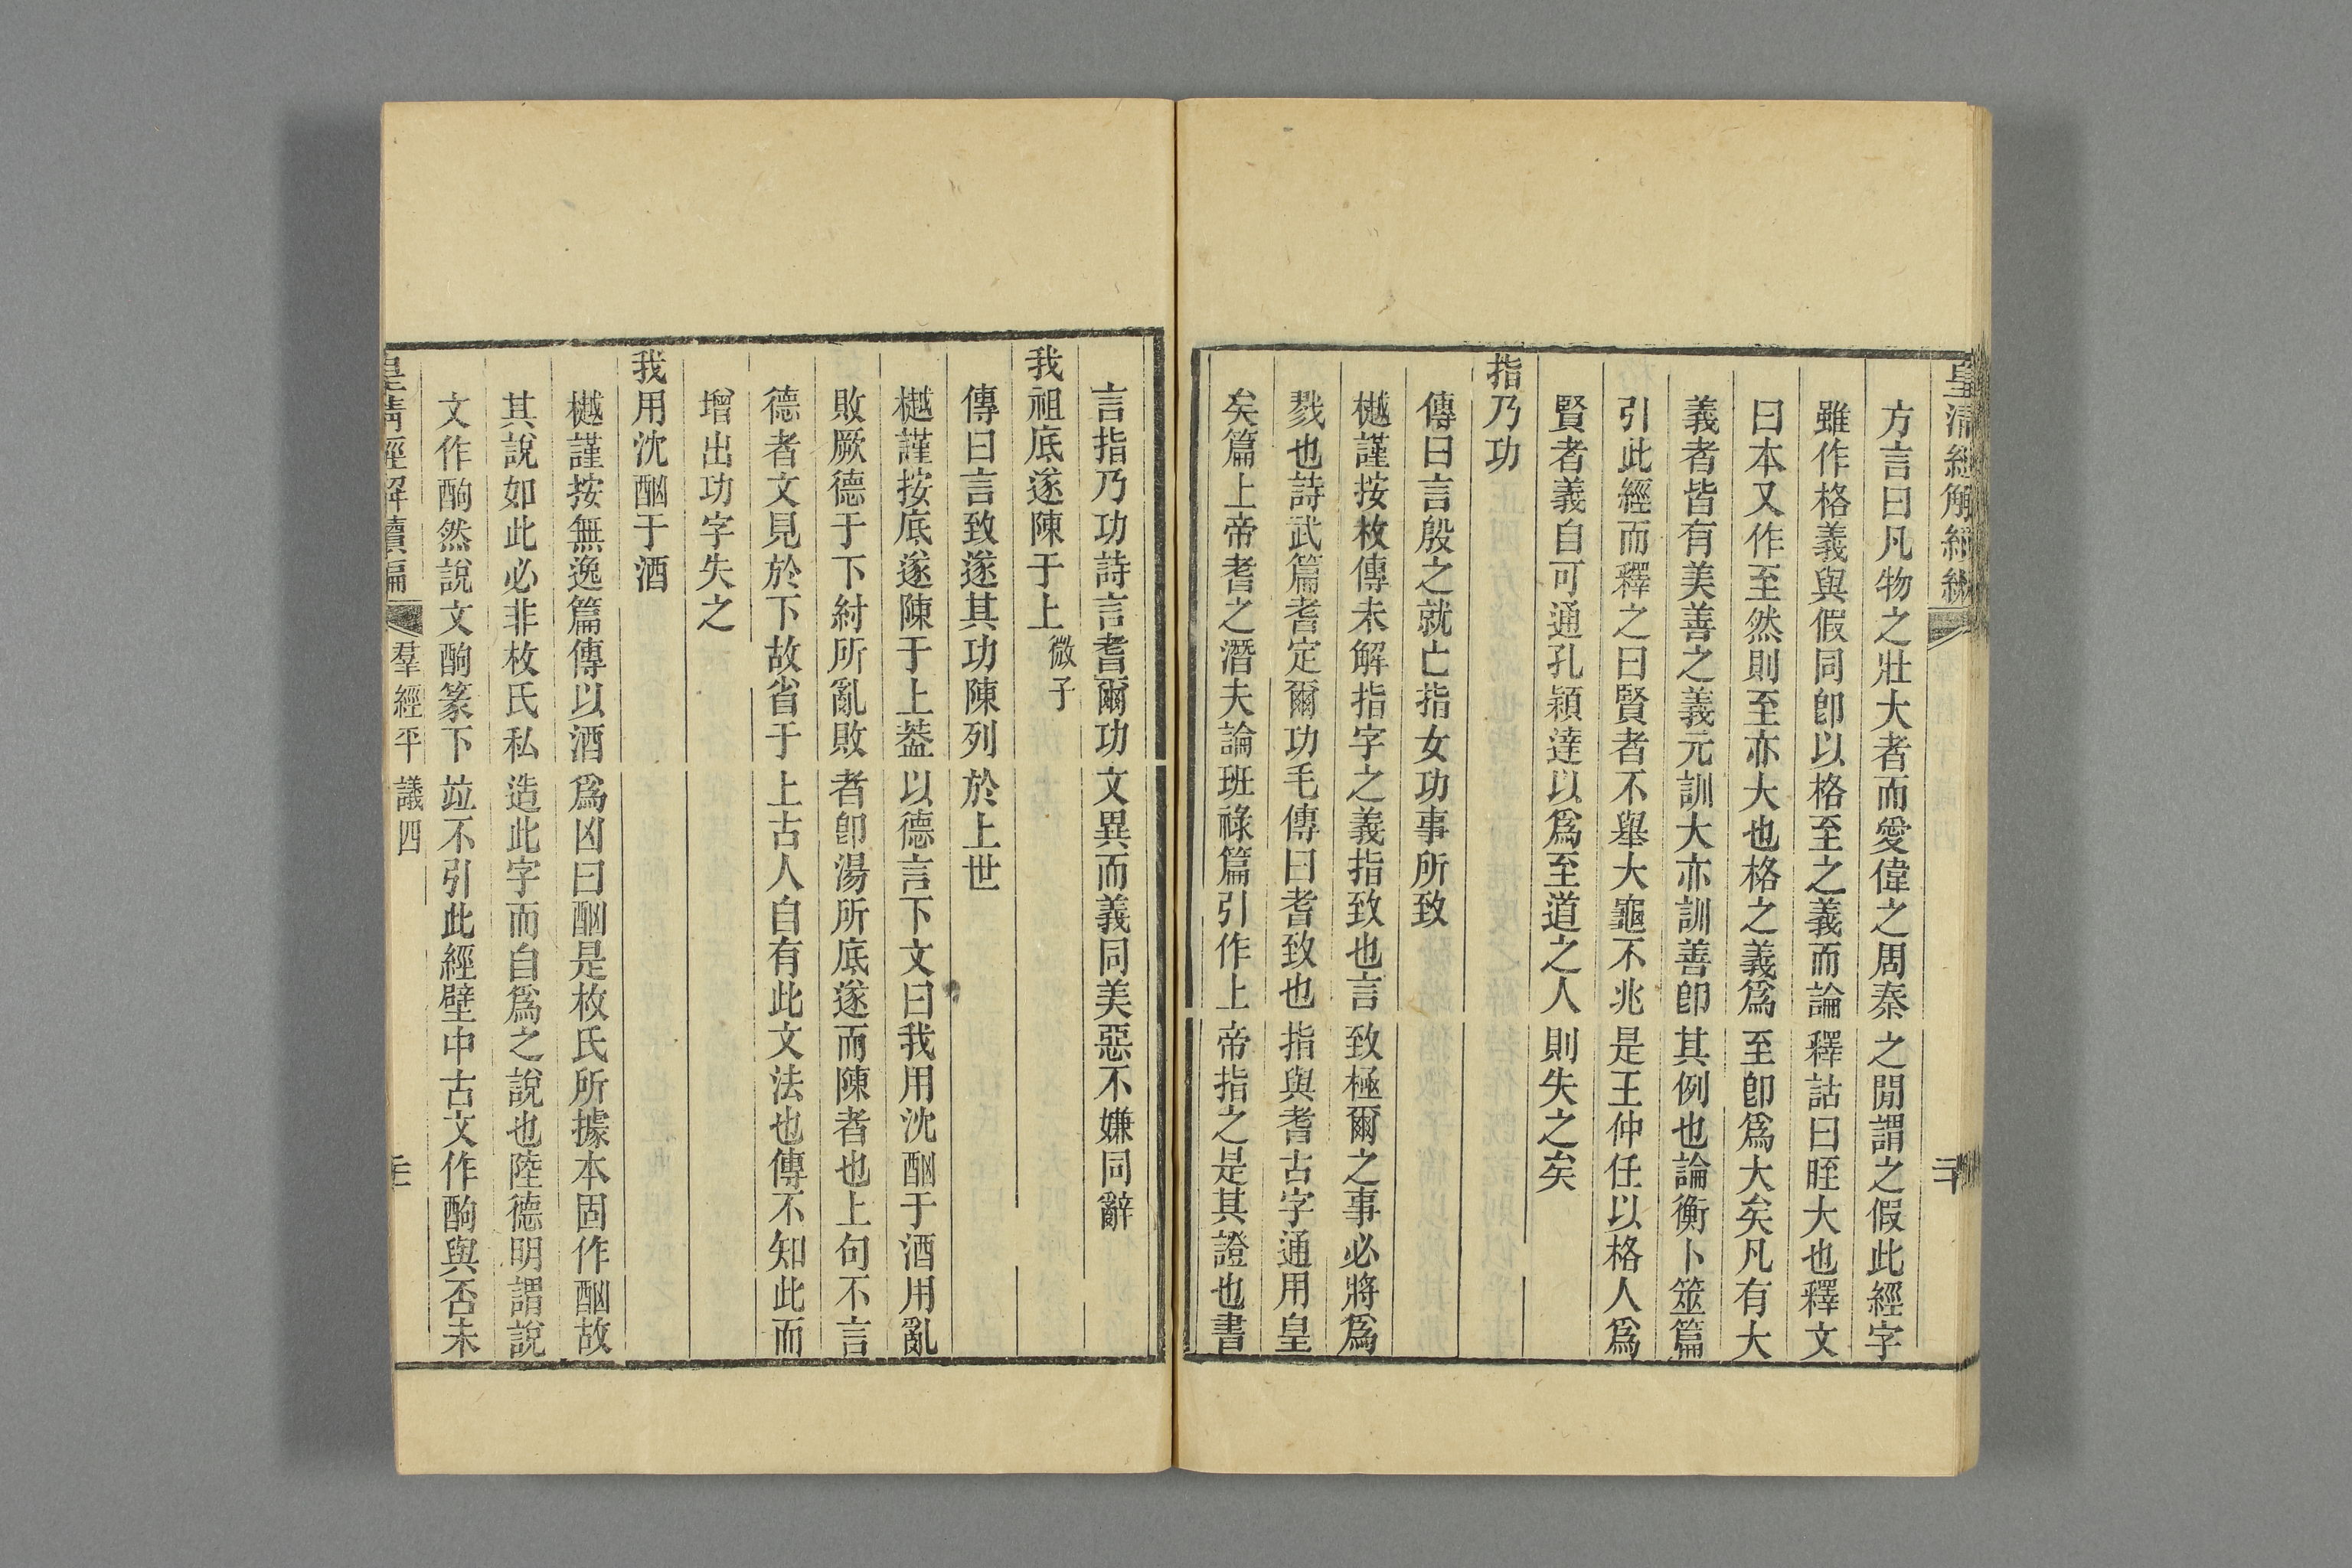 皇清經解續
方言曰凡物之壯大者而愛偉之周秦之閒謂之假此經字
雖作格義與假同卽以格至之義而論釋詁曰晊大也釋文
曰本又作至然則至亦大也格之義爲至卽爲大矣凡有大
義者皆有美善之義元訓大亦訓善卽其例也論衡卜筮篇
引此經而釋之曰賢者不舉大龜不兆是王仲任以格人爲
賢者義自可通孔穎達以爲至道之人則失之矣
指乃功
傳曰言殷之就亡指女功事所致
樾謹按枚傳未解指字之義指致也言致極爾之事必將爲
戮也詩武篇耆定爾功毛傳曰耆致也指與耆古字通用皇
矣篇上帝耆之潛夫論班祿篇引作上帝指之是其證也書
言指乃功詩言耆爾功文異而義同美惡不嫌同辭
我祖底遂陳于上微子
傳曰言致遂其功陳列於上世
樾謹按底遂陳于上葢以德言下文曰我用沈酗于酒用亂
敗厥德于下紂所亂敗者卽湯所底遂而陳者也上句不言
德者文見於下故省于上古人自有此文法也傳不知此而
增出功字失之
我用沈酗于酒
樾謹按無逸篇傳以酒爲凶曰酗是枚氏所據本固作酗故
其說如此必非枚氏私造此字而自爲之說也陸德明謂說
文作酌然說文酌篆下竝不引此經壁中古文作酌與否未
皇淸經解續編 羣經平議四